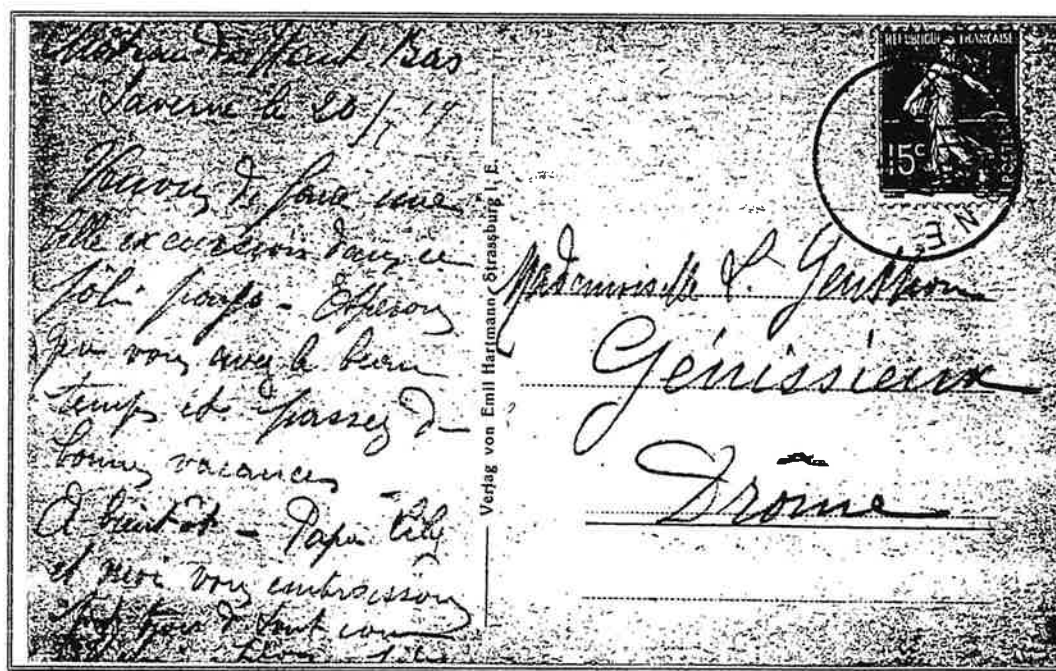 Haut-Bas
Saverne le 20
Venons de faire une
belle excursion dans ce
joli pays - Espérons
que vous avez le beau
temps et passez de
bonnes vacances
A bientôt - Papa
et moi vous embrassons
tout
Verlag von Emil Hartmann Strassburg i. E.
REPUBLIQUE FRANÇAISE
15c
NE
Mademoiselle
Génissieux
Drome